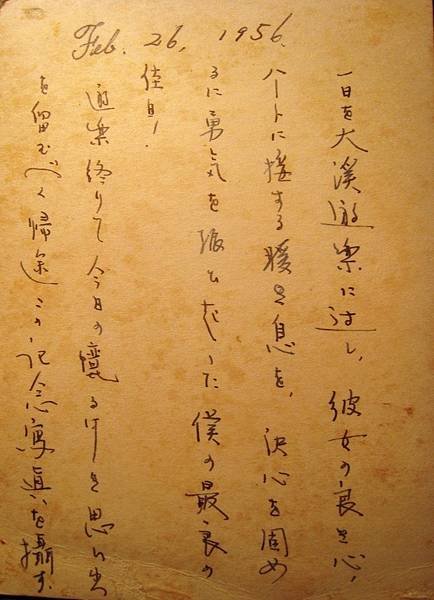 Feb. 26, 1956.
一日を大溪遊楽に過し、彼女の良き心、
ハートに接する暖き息を、決心を固め
るに勇気を振ひ起した僕の最良の
佳日!
遊楽終りて今日の るけき思ひ出
を留むべく帰途この記念寫真を攝す.